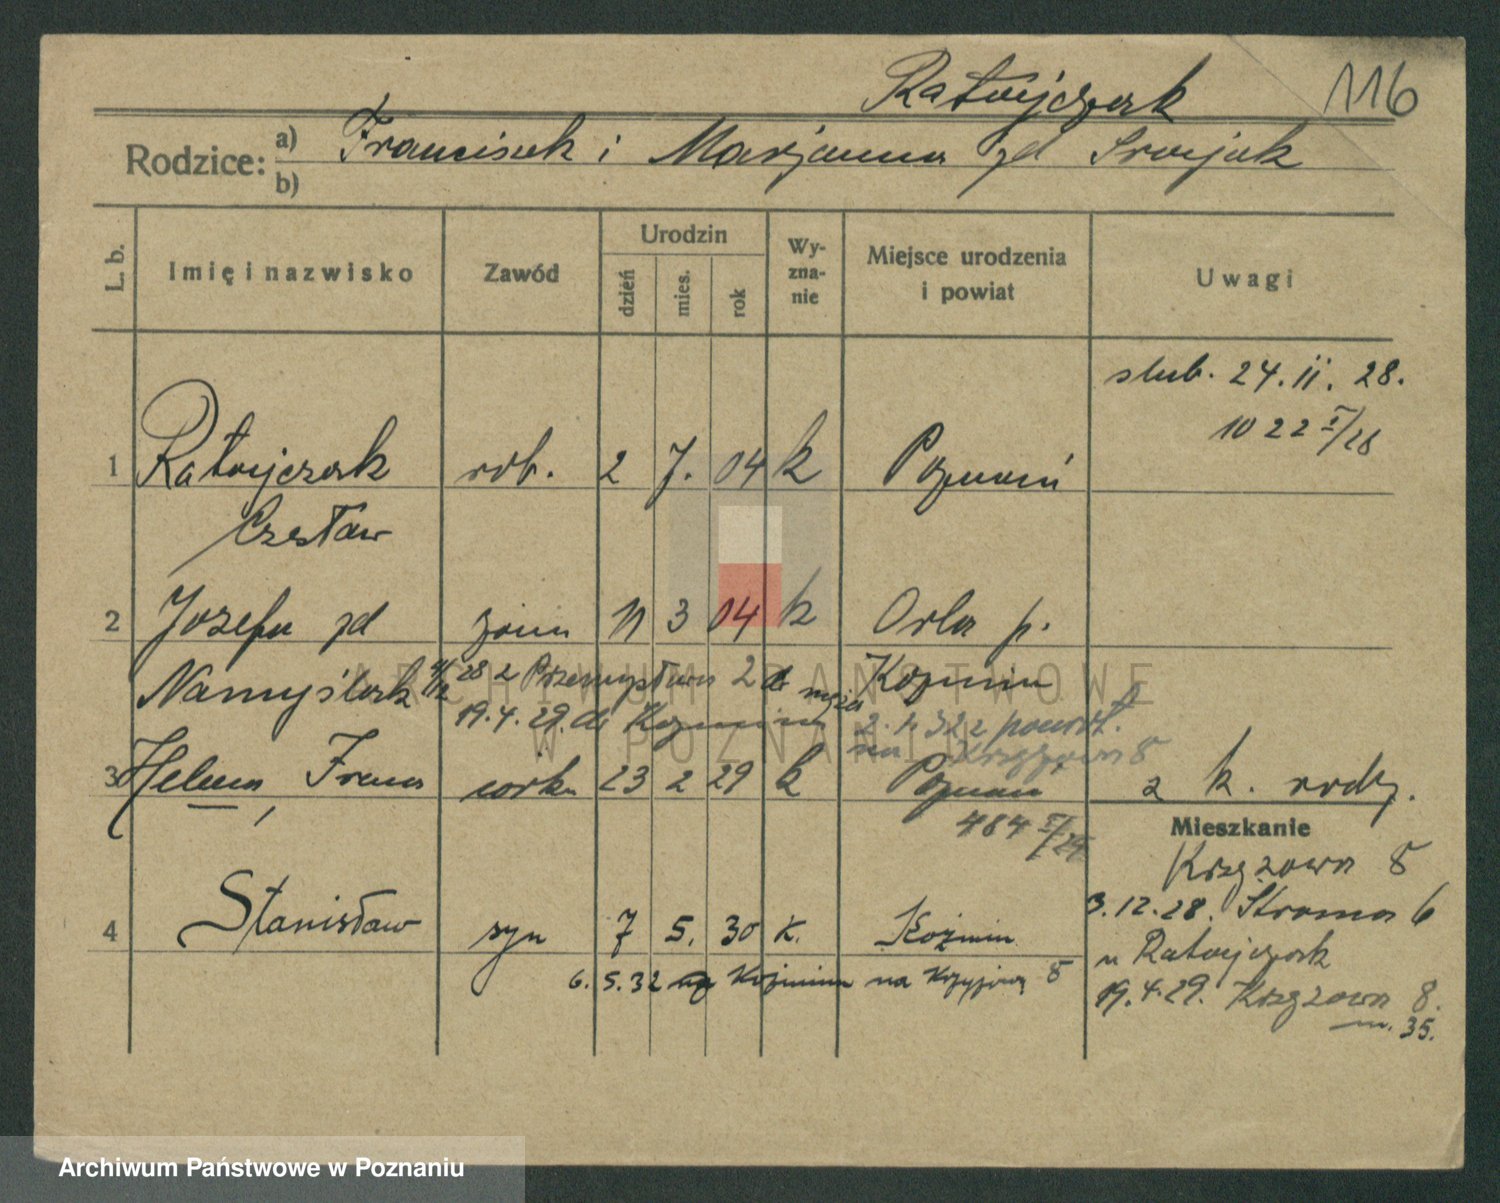 Ratajczak 116
Rodzice: a) Franciszek i Marjanna zd
b)
L. b. Imię i nazwisko Zawód Urodzin dzień mies. rok Wyznanie Miejsce urodzenia i powiat Uwagi
ślub. 24. 11. 28.
10 22 I/28
1 Ratajczak rob. 2 7. 04 k Poznań
Czesław
2 Józefa zd żona 11 3 04 k Orla p.
Namyślak 28 z Przemysława 2 do męża Koźmin
19.4.29. do Koźmina 2. 32 z powrot.
na Krzyżowa 8
3 Helena, Irena córka 23 2 29 k Poznań z k. rodz.
484 I/29
Mieszkanie
Krzyżowa 8
3.12.28. Stroma 6
4 Stanisław syn 7 5. 30 k. Koźmin
u Ratajczak
6. 5. 32 Koźmina na Krzyżową 8
19.4.29. Krzyżowa 8.
m. 35.
ARCHIWUM PAŃSTWOWE
W POZNANIU
Archiwum Państwowe w Poznaniu